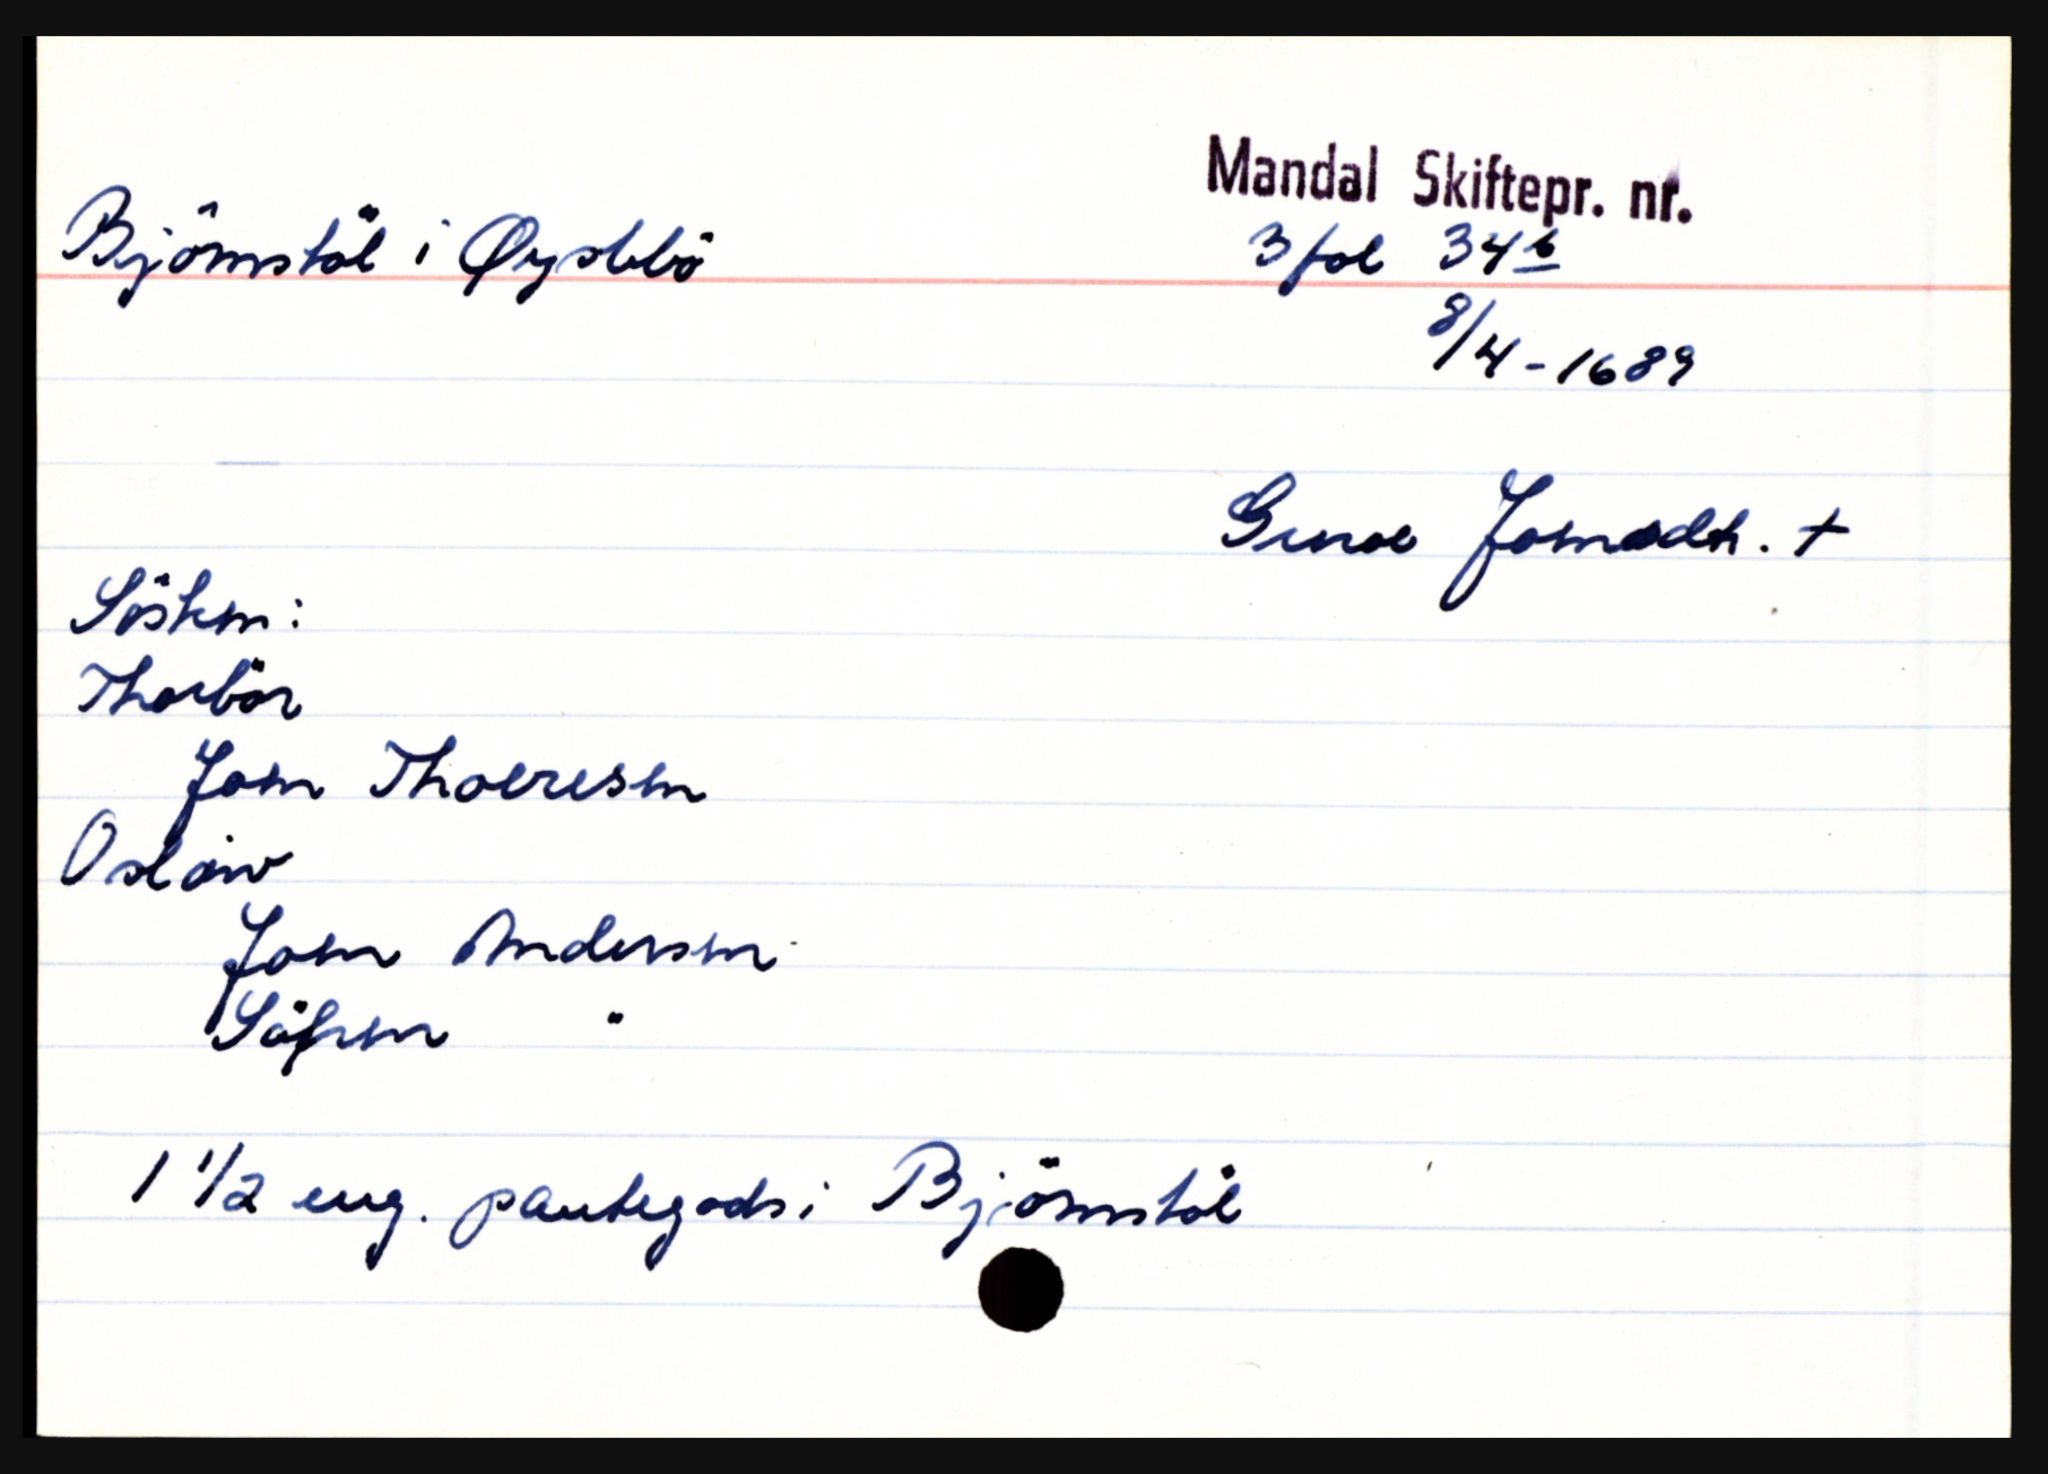 Mandal Skiftepr. nr.
Bjørnstøl i Øyslebø
3 fol 34 b
8/4 - 1689
Guroe Jonsdtr. +
Søsken:
Thorbør
Jon Thoeresen
Osløw
Jon Andersen
Søfren "
1 1/2 eng. pantegods i Bjørnstøl